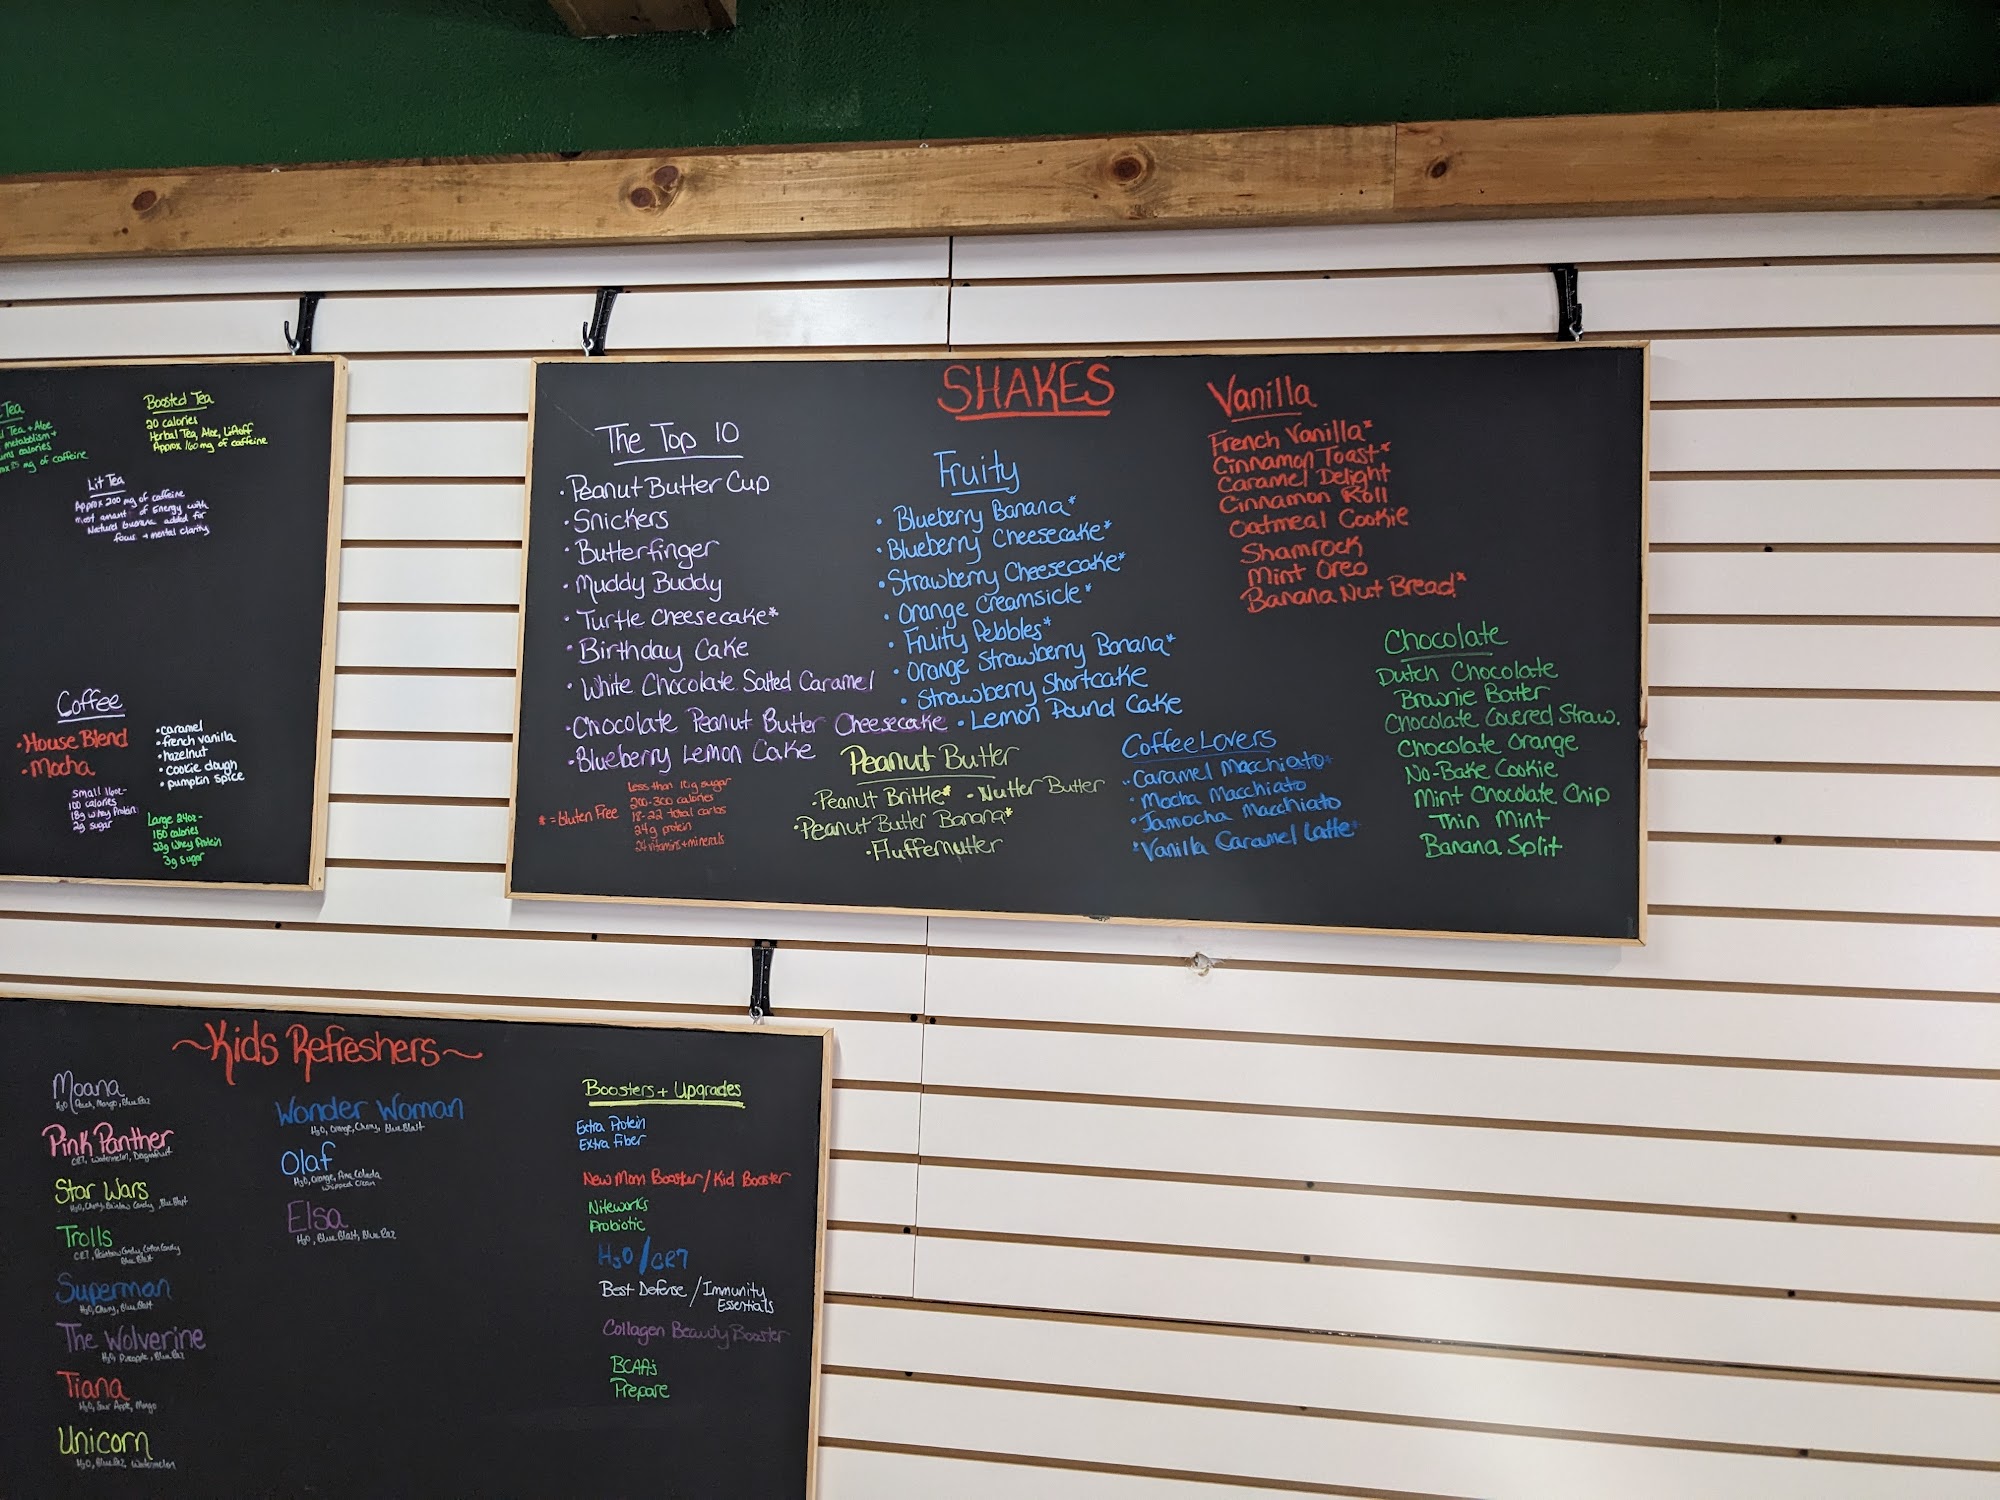 Tea
Tea + Aloe
metabolism +
calories
mg of caffeine
Boosted Tea
20 calories
Herbal Tea, Aloe, Liftoff
Approx 160 mg of caffeine
Lit Tea
Approx 200 mg of caffeine
most amount of Energy with
Natural guarana added for
focus + mental clarity
Coffee
• House Blend
• Mocha
• caramel
• french vanilla
• hazelnut
• cookie dough
• pumpkin spice
Small 16oz-
100 calories
18g Whey Protein
2g sugar
Large 24oz-
150 calories
23g Whey Protein
3g sugar
SHAKES
The Top 10
• Peanut Butter Cup
• Snickers
• Butterfinger
• Muddy Buddy
• Turtle Cheesecake*
• Birthday Cake
• White Chocolate Salted Caramel
• Chocolate Peanut Butter Cheesecake
• Blueberry Lemon Cake
* = Gluten Free
less than 10g sugar
200-300 calories
18-22 total carbs
24g protein
24 vitamins + minerals
Fruity
• Blueberry Banana*
• Blueberry Cheesecake*
• Strawberry Cheesecake*
• Orange Creamsicle*
• Fruity Pebbles*
• Orange Strawberry Banana*
• Strawberry Shortcake
• Lemon Pound Cake
Peanut Butter
• Peanut Brittle* • Nutter Butter
• Peanut Butter Banana*
• Fluffernutter
Vanilla
French Vanilla*
Cinnamon Toast*
Caramel Delight
Cinnamon Roll
Oatmeal Cookie
Shamrock
Mint Oreo
Banana Nut Bread*
Coffee Lovers
• Caramel Macchiato*
• Mocha Macchiato
• Jamocha Macchiato
• Vanilla Caramel Latte*
Chocolate
Dutch Chocolate
Brownie Batter
Chocolate Covered Straw.
Chocolate Orange
No-Bake Cookie
Mint Chocolate Chip
Thin Mint
Banana Split
~Kids Refreshers~
Moana
H3O, Peach, Mango, Blue Raz
Pink Panther
CR7, Watermelon, Dragonfruit
Star Wars
H3O, Cherry, Rainbow Candy, Blue Blast
Trolls
CR7, Rainbow Candy, Cotton Candy
Blue Blast
Superman
H3O, Cherry, Blue Blast
The Wolverine
H3O, Pineapple, Blue Raz
Tiana
H3O, Sour Apple, Mango
Unicorn
H3O, Blue Raz, Watermelon
Wonder Woman
H3O, Orange, Cherry, Blue Blast
Olaf
H3O, Orange, Pina Colada
Whipped Cream
Elsa
H3O, Blue Blast, Blue Raz
Boosters + Upgrades
Extra Protein
Extra Fiber
New Mom Booster/Kid Booster
Niteworks
Probiotic
H3O/CR7
Best Defense / Immunity
Essentials
Collagen Beauty Booster
BCAA's
Prepare